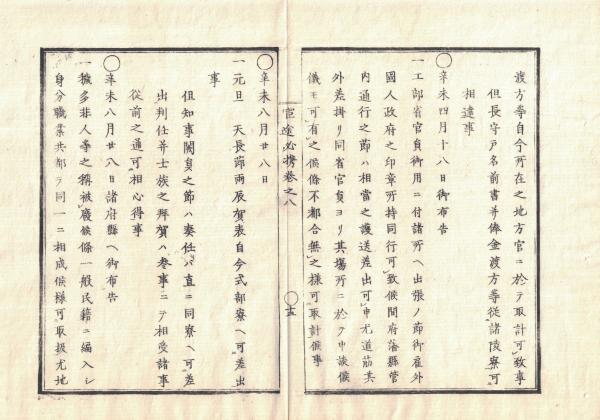 渡方等自今所在之地方官ニ於テ取計可致事
但長守戸名前書并俸金渡方等從諸陵寮可
相達事
◯辛未四月十八日御布告
一工部省官員御用ニ付諸所ヘ出張ノ節御雇外
國人政府之印章所持同行可致候間府藩縣管
内通行之節ハ相當之護送差出可申尤道筋其
外差掛リ同省官員ヨリ其場所ニ於テ申談候
儀モ可有之候條不都合無之樣可取計候事
官途必携巻之八
◯辛未八月廿八日
一元旦 天長節兩辰賀表自今式部寮ヘ可差出
事
但知事闕員之節ハ奏任ハ直ニ同寮ヘ可差
出判任并士族之拜賀ハ參事ニテ相受諸事
從前之通可相心得事
◯辛未八月廿八日諸府縣ヘ御布告
一穢多非人等之稱被廢候條一般民籍ニ編入シ
身分職業共都テ同一ニ相成候樣可取扱尤地